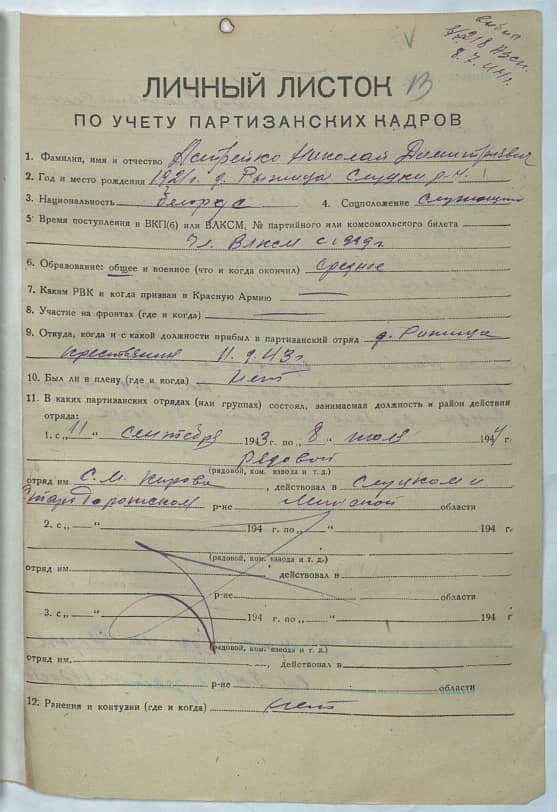 8.7.44г.
ЛИЧНЫЙ ЛИСТОК
ПО УЧЕТУ ПАРТИЗАНСКИХ КАДРОВ
1. Фамилия, имя и отчество Николай Дмитриевич
2. Год и место рождения 1921 г. д. Слуцки р-н
3. Национальность белорус 4. Соцположение Служащий
5. Время поступления в ВКП(б) или ВЛКСМ, № партийного или комсомольского билета
Чл. ВЛКСМ с 1939 г
6. Образование: общее и военное (что и когда окончил) среднее
7. Каким РВК и когда призван в Красную Армию —
8. Участие на фронтах (где и когда) —
9. Откуда, когда и с какой должности прибыл в партизанский отряд д.
11.9.43г.
10. Был ли в плену (где и когда) нет
11. В каких партизанских отрядах (или группах) состоял, занимаемая должность и район действия
отряда:
1. с „11 “ сентября 1943 г. по „8 “ июля 1944 г.
рядовой
(рядовой, ком. взвода и т. д.)
отряд им. С.М. Кирова, действовал в Слуцком и
Стародорожском р-не Минской области
2. с „ “ 194 г. по „ “ 194 г.
(рядовой, ком. взвода и т. д.)
отряд им. действовал в
р-не области
3. с „ “ 194 г. по „ “ 194 г
(рядовой, ком. взвода и т. д.)
отряд им. , действовал в
р-не области
12. Ранения и контузии (где и когда) нет